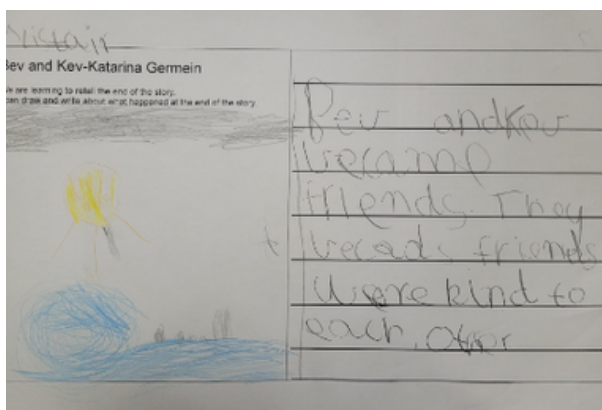 Bev and Kev-Katarina Germein
We are learning to retell the end of the story.
can draw and write about what happened at the end of the story.
Bev andKev
vecame
friends. They
friends
were kind to
each other